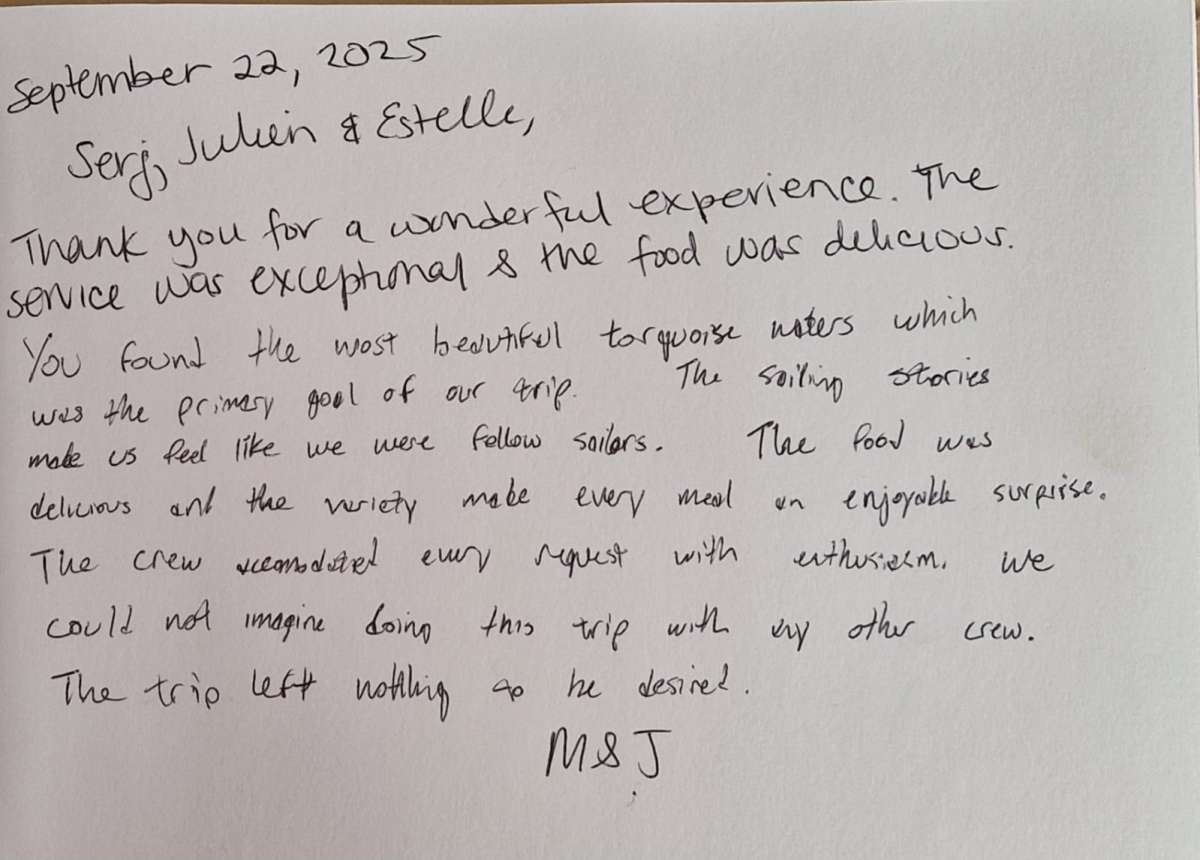 September 22, 2025
Serj, Julien & Estelle,
Thank you for a wonderful experience. The
service was exceptional & the food was delicious.
You found the most beautiful torquoise waters which
was the primary goal of our trip. The sailing stories
made us feel like we were fellow sailors. The food was
delicious and the variety made every meal an enjoyable surprise.
The crew accomodated every request with enthusiasm. We
could not imagine doing this trip with any other crew.
The trip left nothing to be desired.
M & J